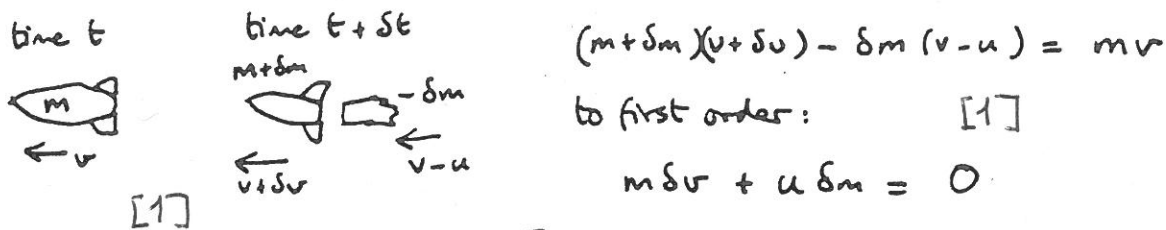 time t
m
← v
[1]
time t + δt
m+δm
-δm
← v+δv
← v-u
(m+δm)(v+δv) - δm (v-u) = mv
to first order: [1]
mδv + u δm = 0